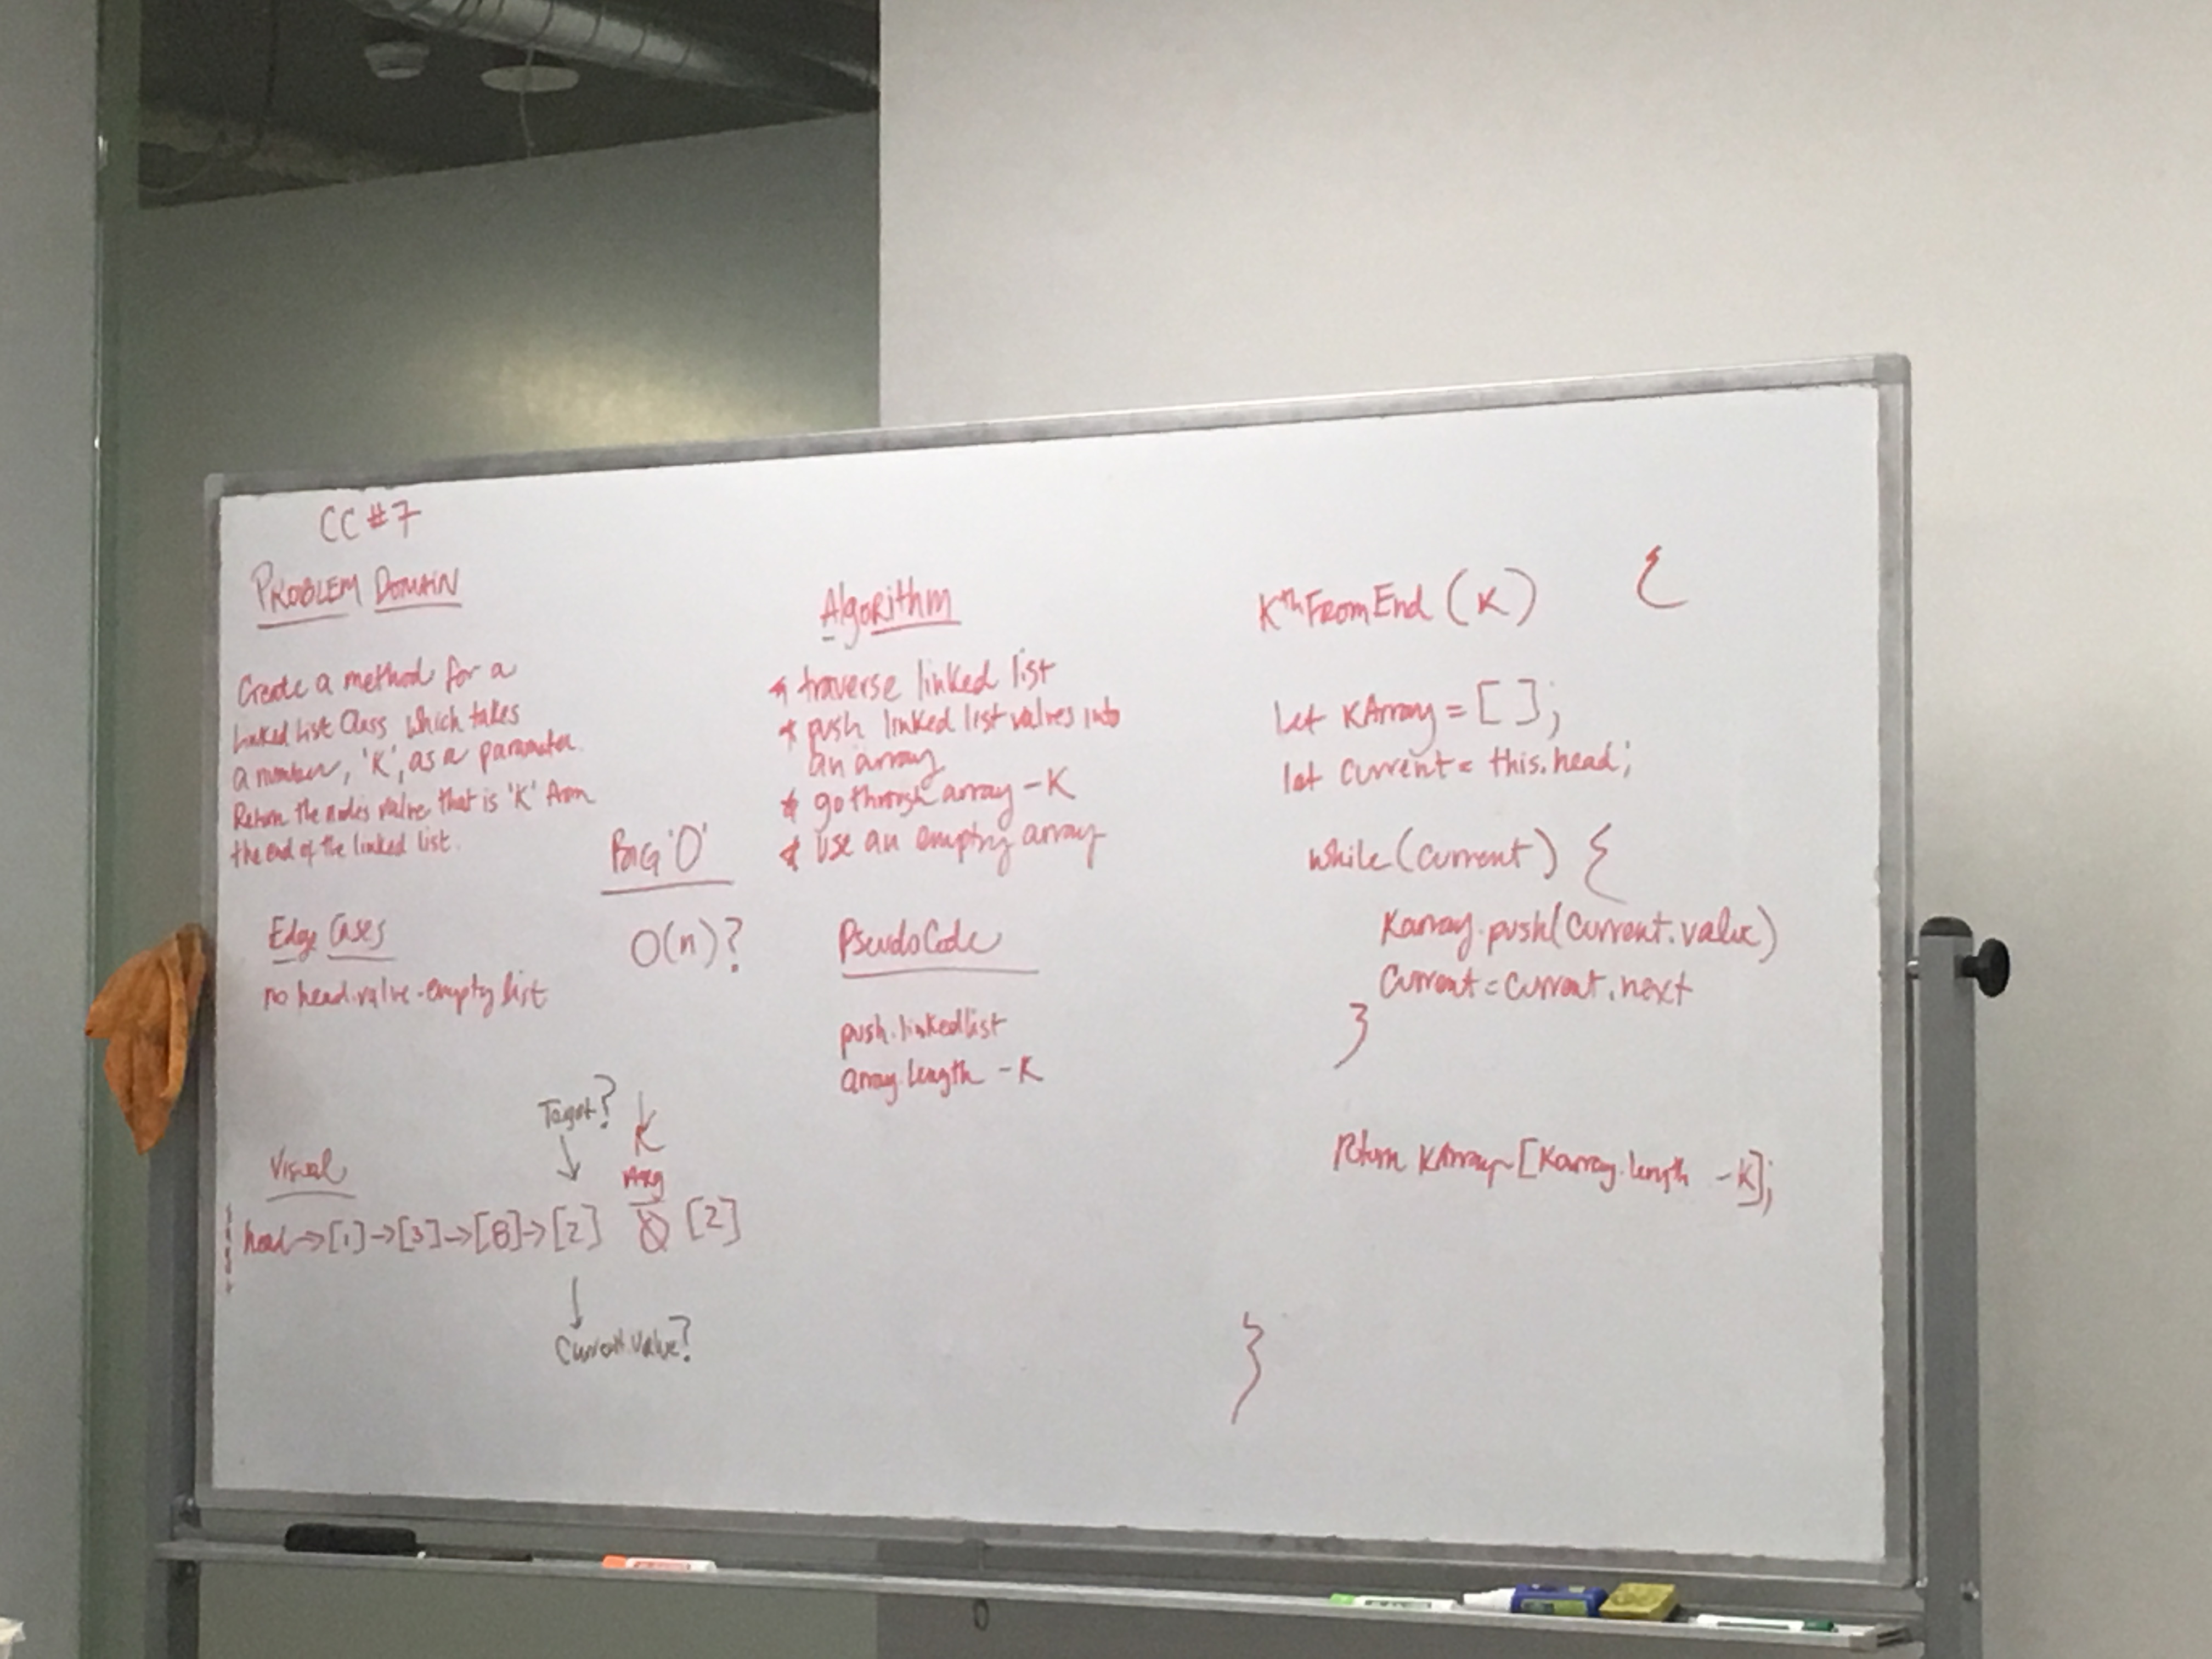 CC #7
PROBLEM DOMAIN
Create a method for a
Linked List Class which takes
a number, 'K', as a parameter.
Return the nodes value that is 'K' from
the end of the linked list.
Edge Cases
no head.value - empty list
BIG 'O'
O(n)?
Visual
Target?
K
Arg
head → [1] → [3] → [8] → [2] [2]
Current.value?
Algorithm
* traverse linked list
* push linked list values into
an array
* go through array - K
* use an empty array
PseudoCode
push.linkedlist
array.length - K
KthFromEnd (K) {
let KArray = [ ];
let current = this.head;
while (current) {
Karray.push(current.value)
Current = current.next
}
return KArray [Karray.length - K];
}